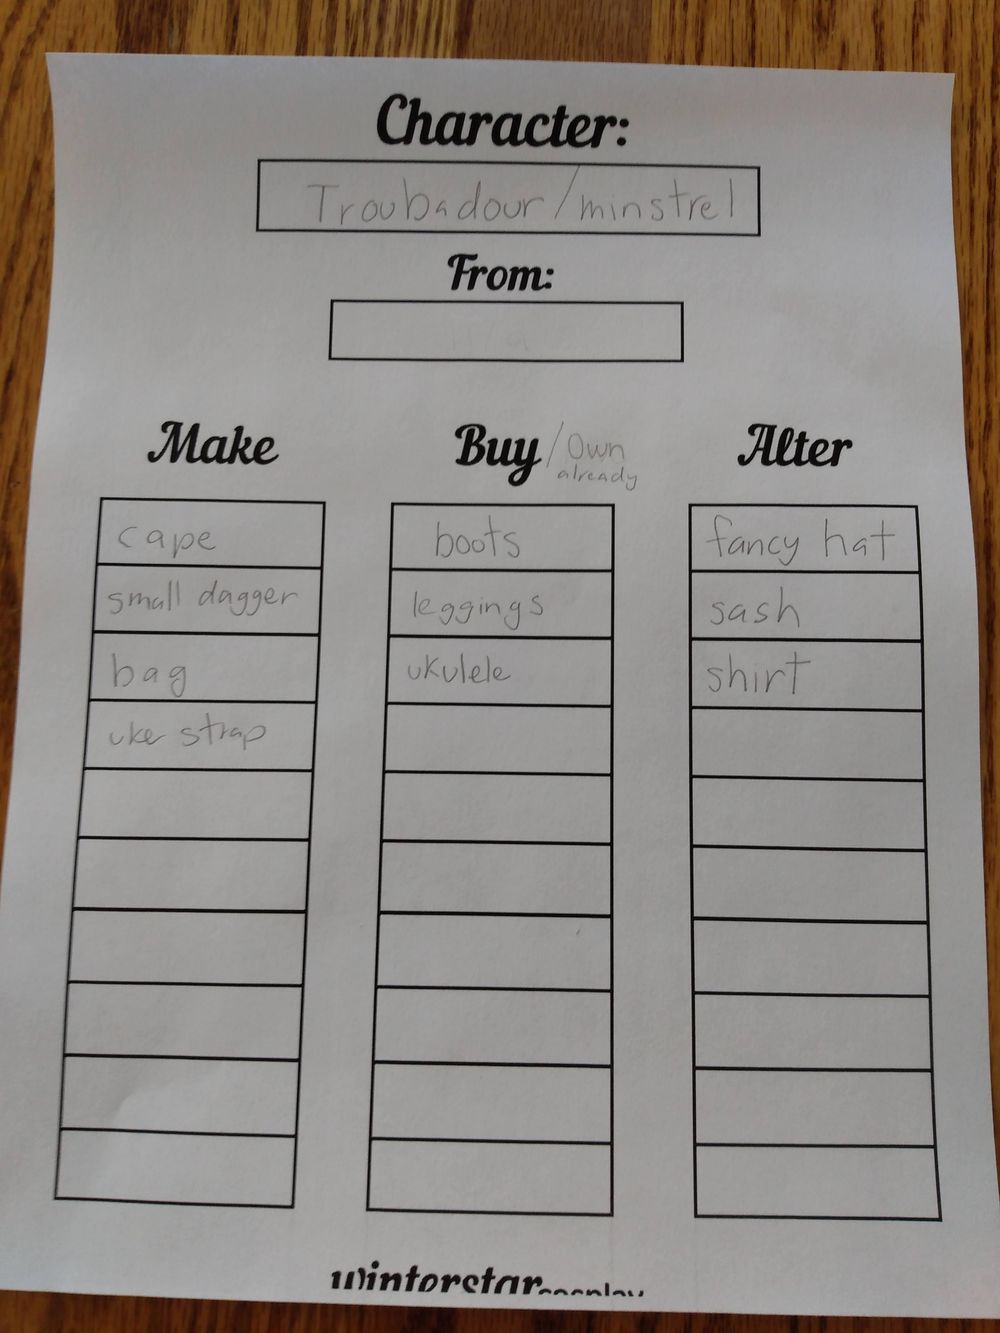 Character:
Troubadour/minstrel
From:
n/a
Make
cape
small dagger
bag
uke strap
Buy/Own already
boots
leggings
ukulele
Alter
fancy hat
sash
shirt
winterstar cosplay